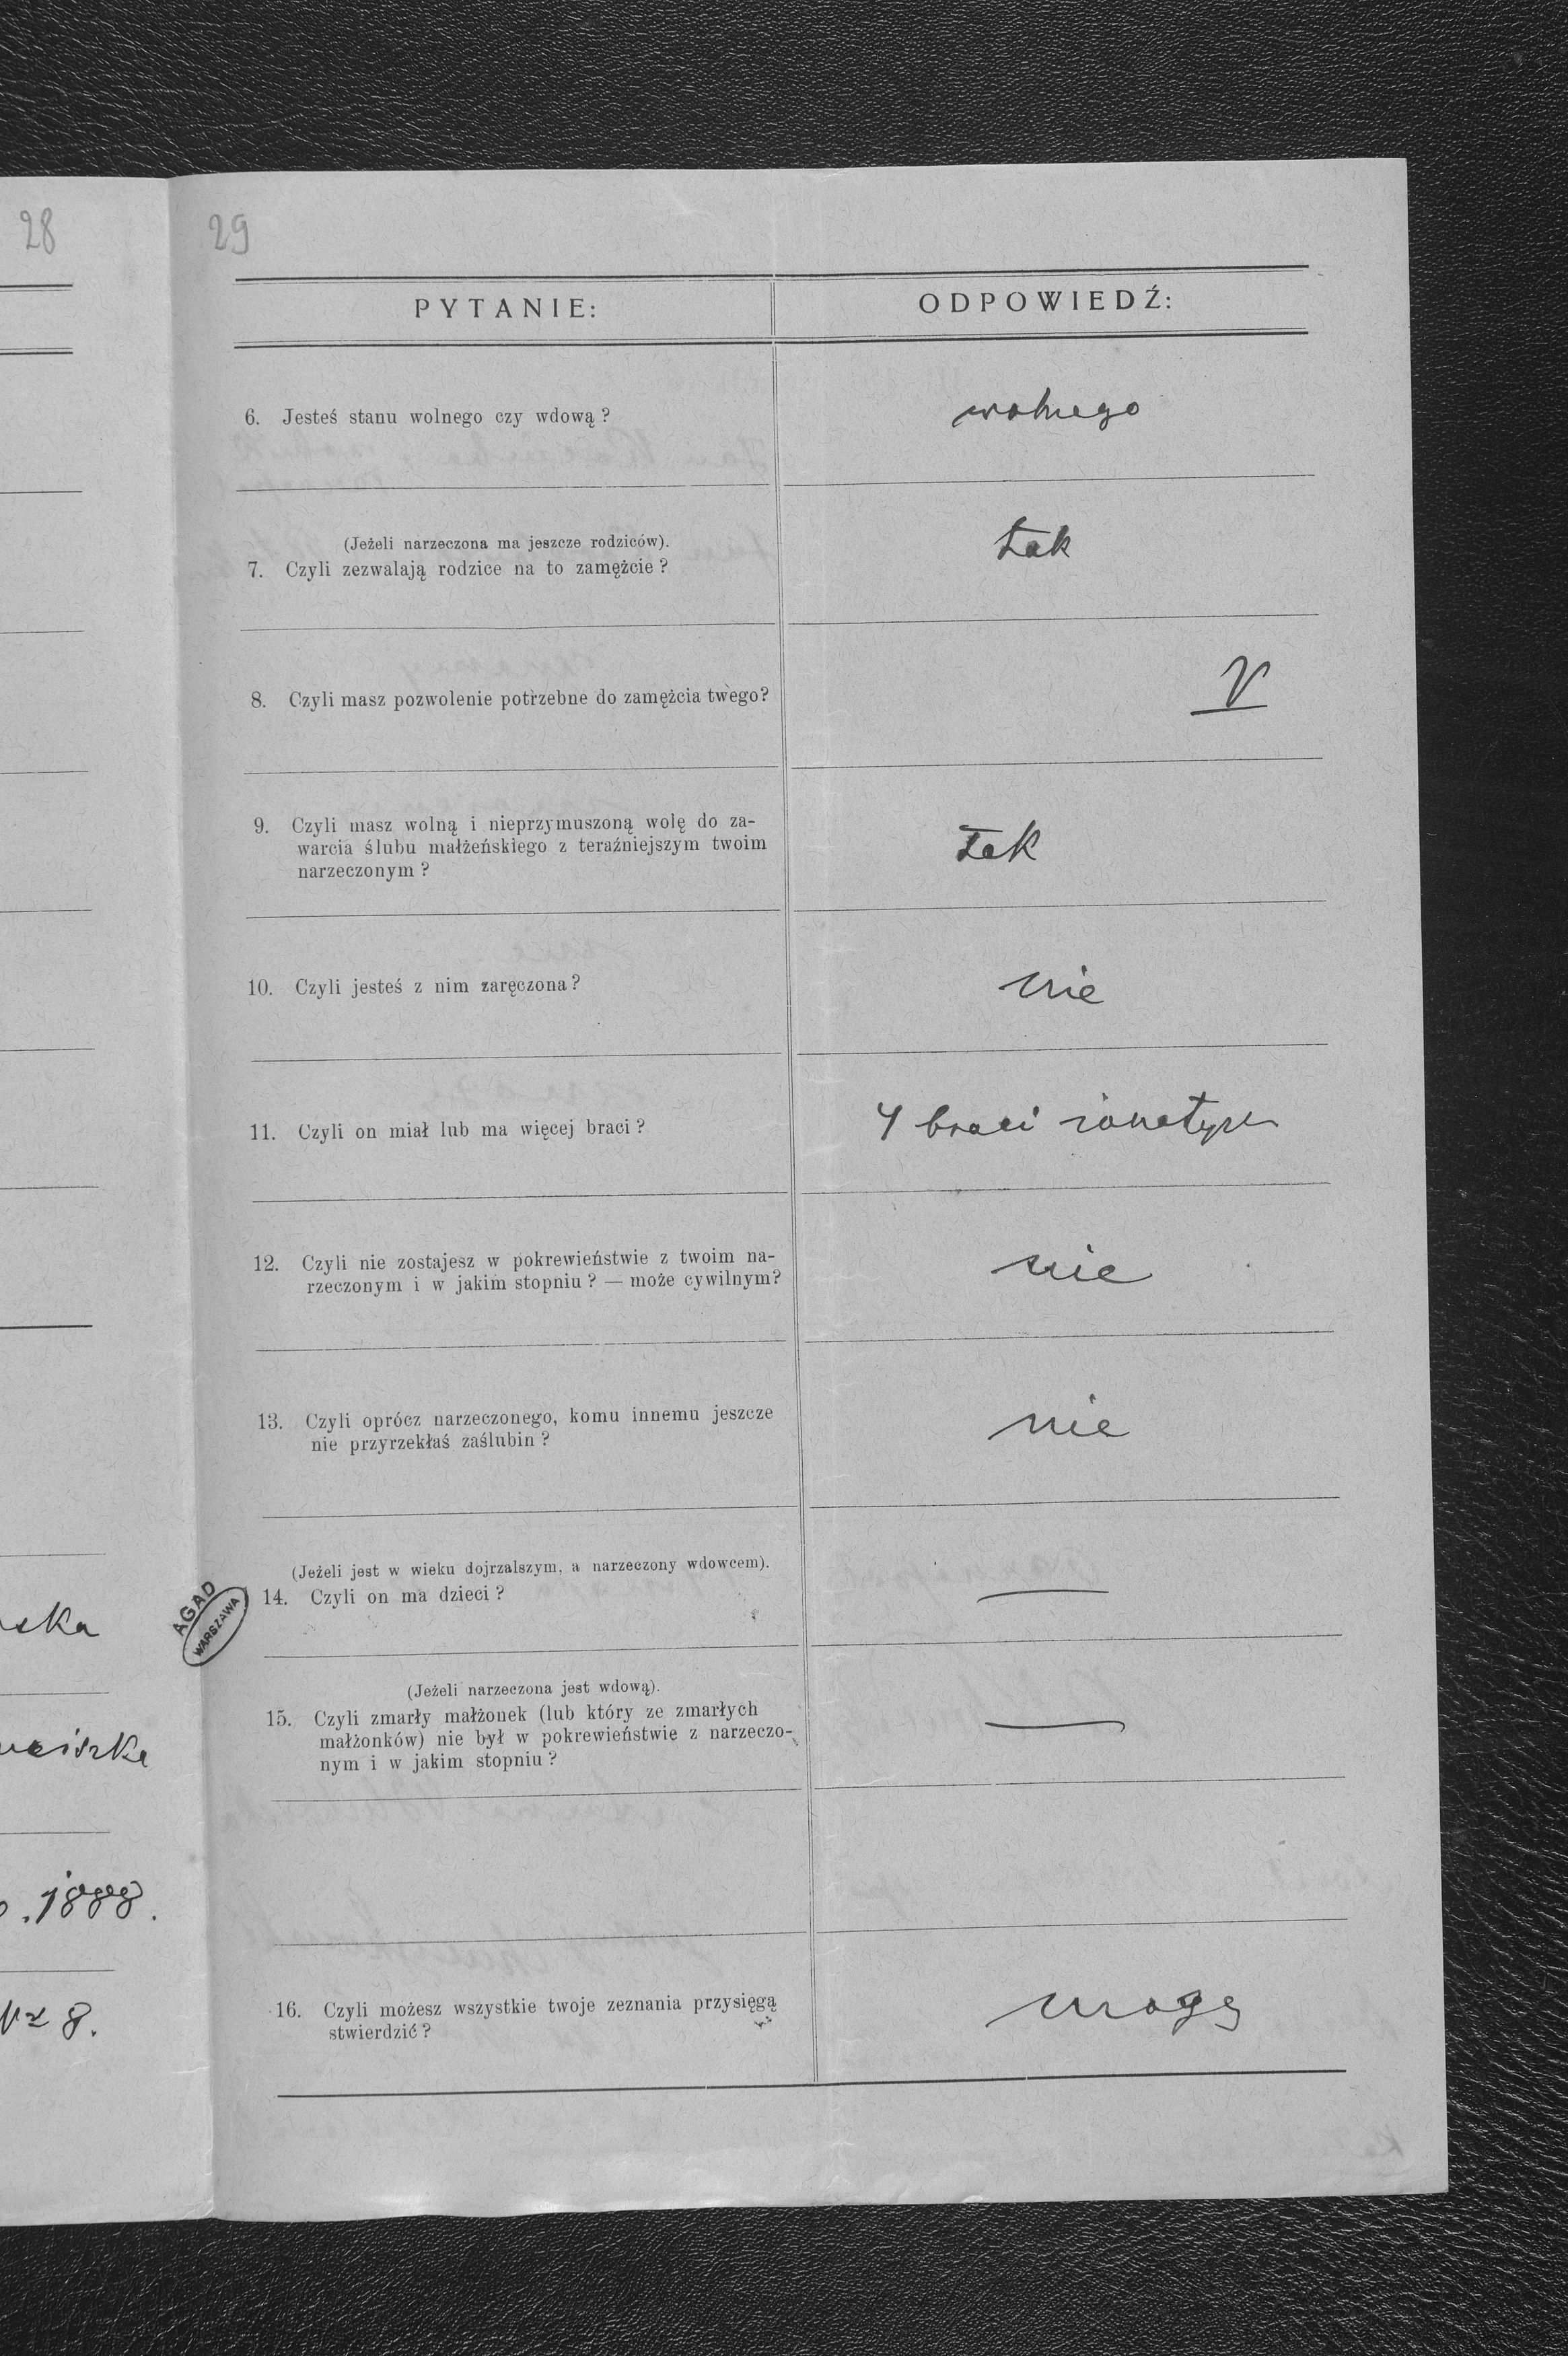 28
29
PYTANIE:
ODPOWIEDŹ:
6. Jesteś stanu wolnego czy wdową?
wolnego
(Jeżeli narzeczona ma jeszcze rodziców).
7. Czyli zezwalają rodzice na to zamężcie?
tak
8. Czyli masz pozwolenie potrzebne do zamężcia twego?
V
9. Czyli masz wolną i nieprzymuszoną wolę do za-
warcia ślubu małżeńskiego z teraźniejszym twoim
narzeczonym?
tak
10. Czyli jesteś z nim zaręczona?
nie
11. Czyli on miał lub ma więcej braci?
4 braci żonatych
12. Czyli nie zostajesz w pokrewieństwie z twoim na-
rzeczonym i w jakim stopniu? — może cywilnym?
nie
13. Czyli oprócz narzeczonego, komu innemu jeszcze
nie przyrzekłaś zaślubin?
nie
(Jeżeli jest w wieku dojrzalszym, a narzeczony wdowcem).
14. Czyli on ma dzieci?
—
AGAD
WARSZAWA
(Jeżeli narzeczona jest wdową).
15. Czyli zmarły małżonek (lub który ze zmarłych
małżonków) nie był w pokrewieństwie z narzeczo-
nym i w jakim stopniu?
—
16. Czyli możesz wszystkie twoje zeznania przysięgą
stwierdzić?
mogę
ska
1888.
8.